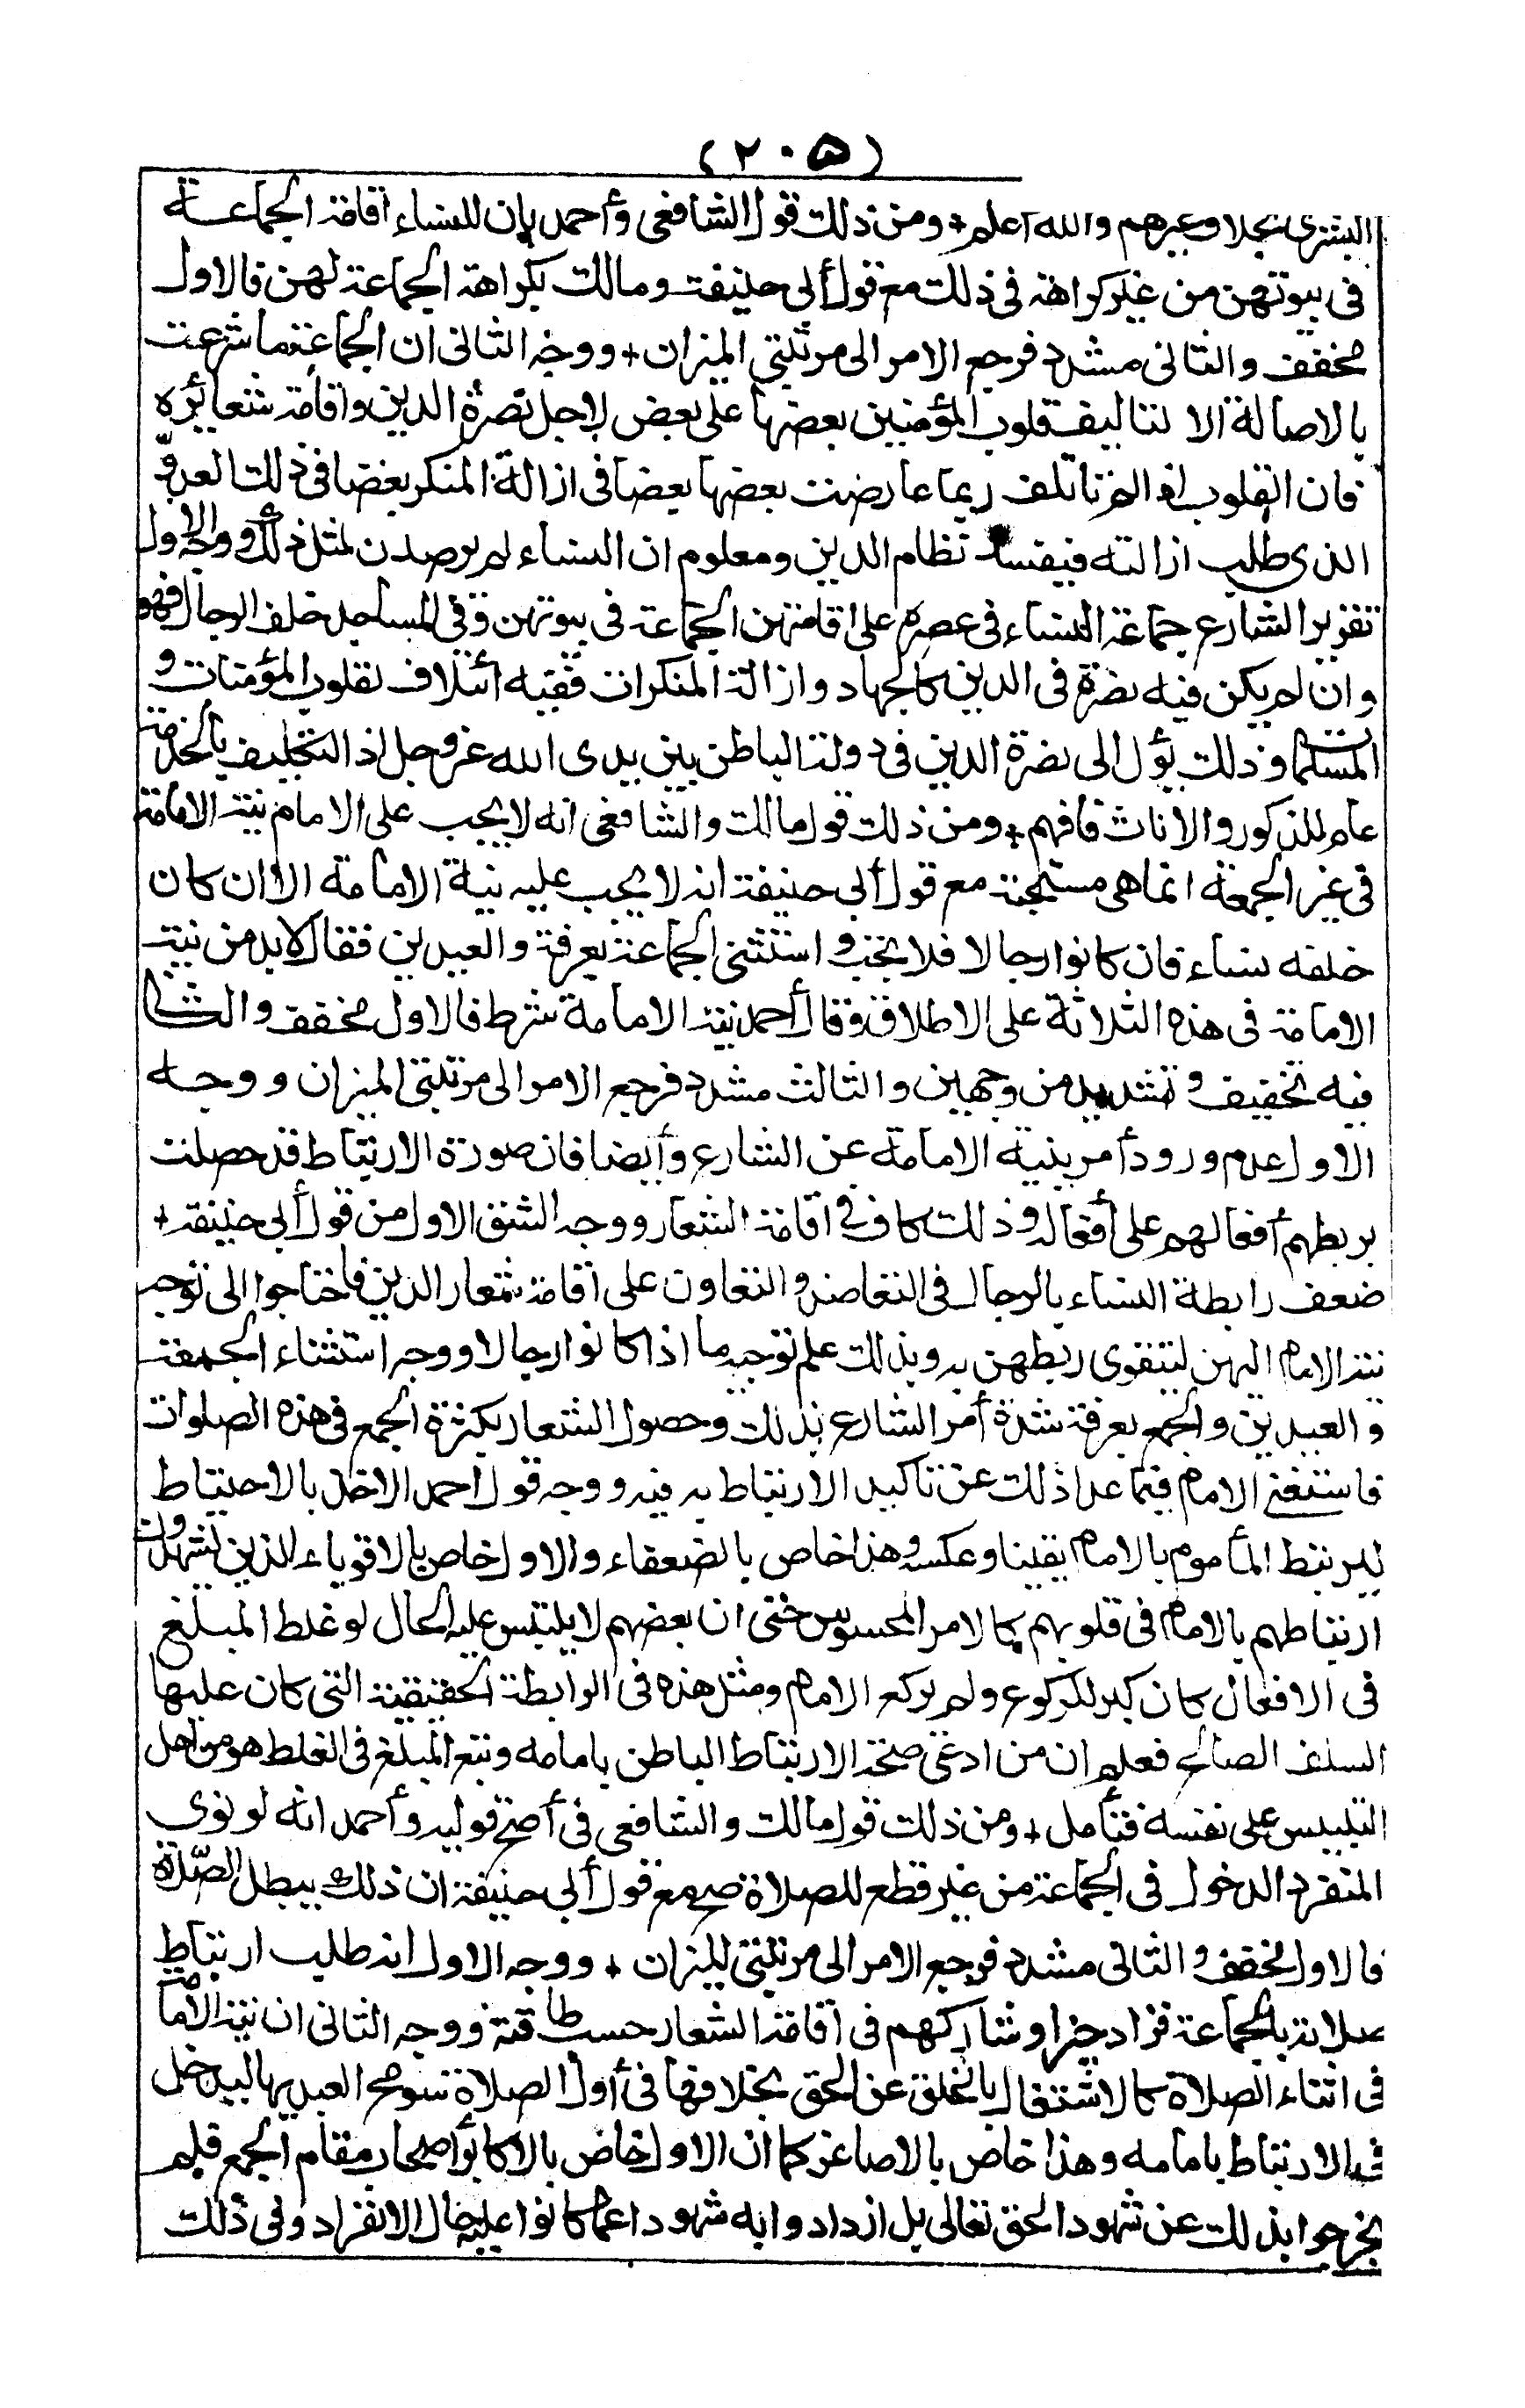 (٢٠۵)
البشرى بخلاف غيرهم والله اعلم + ومن ذلك قول الشافعى وأحمد بان للنساء اقامة الجماعة
فى بيوتهن من غير كراهة فى ذلك مع قول أبى حنيفة ومالك بكراهة الجماعة لهن فالاول
مخفف والثانى مشدد فرجع الامر الى مرتبتى الميزان + ووجه الثانى ان الجماعة ما شرعت
بالاصالة الا لتاليف قلوب المؤمنين بعضها على بعض لاجل نصرة الدين واقامة شعائره
فان القلوب اذا لم تاتلف ربما عارضت بعضها بعضا فى ازالة المنكر بغضا فى ذلك العدوّ
الذى طلب ازالته فيفسد نظام الدين ومعلوم ان النساء لم يرصدن لمثل ذلك ووجه الاول
تقرير الشارع جماعة النساء فى عصره على اقامتهن الجماعة فى بيوتهن وفى المساجد خلف الرجال فهو
وان لم يكن فيه نصرة فى الدين كالجهاد وازالة المنكرات ففيه ائتلاف لقلوب المؤمنات و
المسلمات وذلك يؤل الى نصرة الدين فى دولة الباطن بين يدى الله عز وجل اذ التكليف بالخدمة
عام للذكور والاناث فافهم + ومن ذلك قول مالك والشافعى انه لا يجب على الامام نية الامامة
فى غير الجمعة انما هى مستحبة مع قول أبى حنيفة انه لا يجب عليه نية الامامة الا ان كان
خلفه نساء فان كانوا رجالا فلا تجب و استثنى الجماعة بعرفة والعيدين فقال لابد من نية
الامامة فى هذه الثلاثة على الاطلاق وقال أحمد نية الامامة شرط فالاول مخفف والثانى
فيه تخفيف وتشديد من وجهين والثالث مشدد فرجع الامر الى مرتبتى الميزان ووجه
الاول عدم ورود أمر بنية الامامة عن الشارع وأيضا فان صورة الارتباط قد حصلت
بربطهم أفعالهم على أفعاله وذلك كاف فى اقامة الشعار ووجه الشق الاول من قول أبى حنيفة +
ضعف رابطة النساء بالرجال فى التعاضد والتعاون على اقامة شعار الدين فاحتاجوا الى توجه
نية الامام اليهن ليتقوى ربطهن به وبذلك علم توجيه ما اذا كانوا رجالا ووجه استثناء الجمعة
والعيدين والجمع بعرفة شدة أمر الشارع بذلك وحصول الشعار بكثرة الجمع فى هذه الصلوات
فاستغنى الامام فيما عدا ذلك عن تاكيد الارتباط به فيه ووجه قول احمد الاخذ بالاحتياط
ليرتبط المأموم بالامام يقينا وعكسه وهذا خاص بالضعفاء والاول خاص بالاقوياء الذين يشهدون
ارتباطهم بالامام فى قلوبهم كالامر المحسوس حتى ان بعضهم لا يلتبس عليه الحال لو غلط المبلغ
فى الافعال كان كبر للركوع ولم يركع الامام ومثل هذه فى الرابطة الحقيقية التى كان عليها
السلف الصالح فعلم ان من ادعى صحة الارتباط الباطن بامامه وتبع المبلغ فى الغلط هو من اهل
التلبيس على نفسه فتأمل + ومن ذلك قول مالك والشافعى فى أصح قوليه وأحمد انه لو نوى
المنفرد الدخول فى الجماعة من غير قطع للصلاة صح مع قول أبى حنيفة ان ذلك يبطل الصّلاة
فالاول مخفف والثانى مشدد فرجع الامر الى مرتبتى الميزان + ووجه الاول انه طلب ارتباط
صلاته بالجماعة فزاد خيرا وشاركهم فى اقامة الشعار حسب طاقته ووجه الثانى ان نية الامامة
فى اثناء الصلاة كالاشتغال بالخلق عن الحق بخلافها فى أول الصلاة سومح العبد بها ليدخل
فى الارتباط بامامه وهذا خاص بالاصاغر كما ان الاول خاص بالاكابر أصحاب مقام الجمع فلم
يخرجوا بذلك عن شهود الحق تعالى بل ازدادوا به شهودا عما كانوا عليه حال الانفراد وفى ذلك